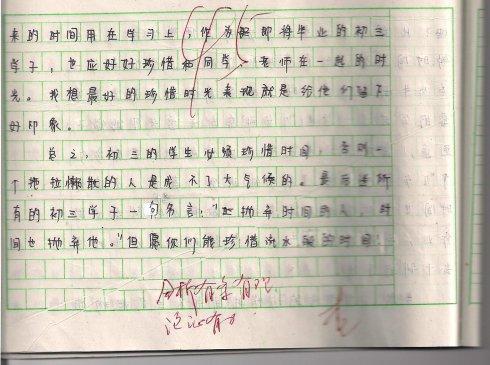 来的时间用在学习上，作为即将毕业的初三
学子，也应好好珍惜和同学、老师在一起的时
光。我想最好的珍惜时光表现就是给他们留下
好印象。
总之，初三的学生必须珍惜时间，否则一
个拖拉懒散的人是成不了大气候的。最后送所
有的初三学子一句名言：“抛弃时间的人，时
间也抛弃他。”但愿你们能珍惜流水般的时间
45
分析有字有
论证有力